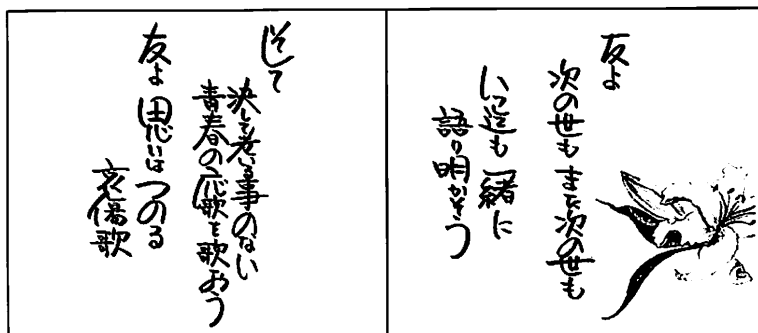 友よ
次の世も また次の世も
いつ迄も 一緒に
語り明かそう
そして
決して老いる事のない
青春の応歌を歌おう
友よ 思いはつのる
哀傷歌